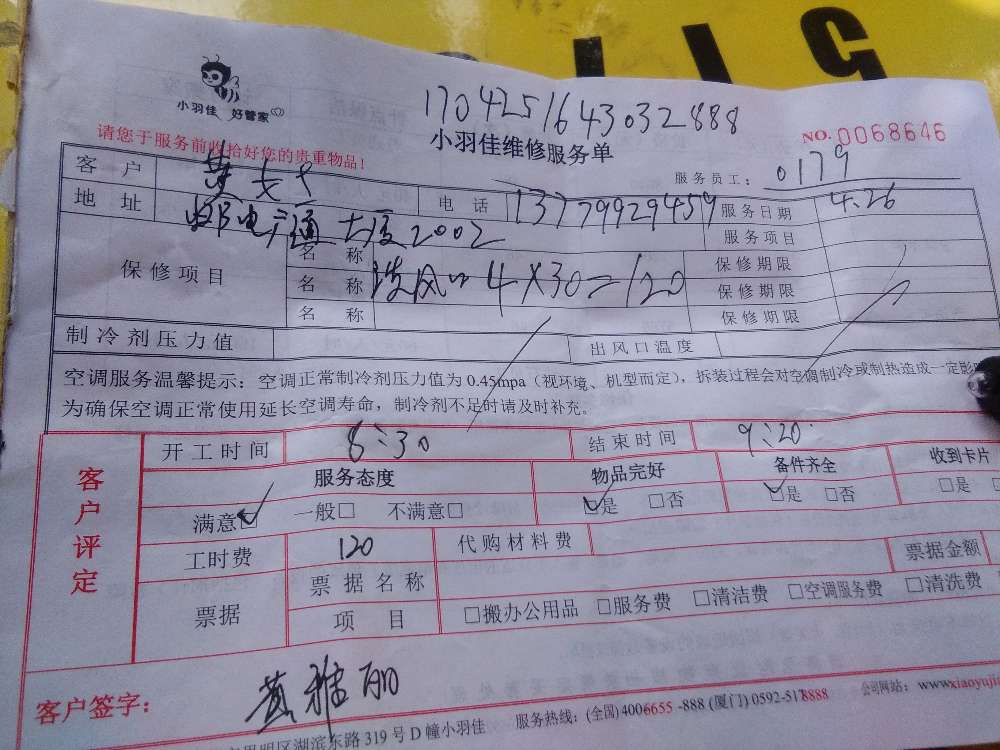 小羽佳 好管家
1704251643032888
小羽佳维修服务单
NO.0068646
请您于服务前收拾好您的贵重物品!
服务员工: 0179
客户 黄女士 电话 13779929459 服务日期 4.26
地址 邮电广通大厦2002 服务项目
保修项目 名称 保修期限
名称 洗风口4×30=120 保修期限
名称 保修期限
制冷剂压力值 出风口温度
空调服务温馨提示:空调正常制冷剂压力值为0.45mpa(视环境、机型而定),拆装过程会对空调制冷或制热造成一定影
为确保空调正常使用延长空调寿命,制冷剂不足时请及时补充。
客户评定
开工时间 8:30 结束时间 9:20
服务态度 物品完好 备件齐全 收到卡片
满意☑ 一般□ 不满意□ ☑是 □否 ☑是 □否 □是
工时费 120 代购材料费
票据 票据名称 票据金额
项目 □搬办公用品 □服务费 □清洁费 □空调服务费 □清洗费
客户签字: 黄雅丽
明区湖滨东路319号D幢小羽佳 服务热线:(全国)4006655-888(厦门)0592-5178888 公司网站:www.xiaoyujia